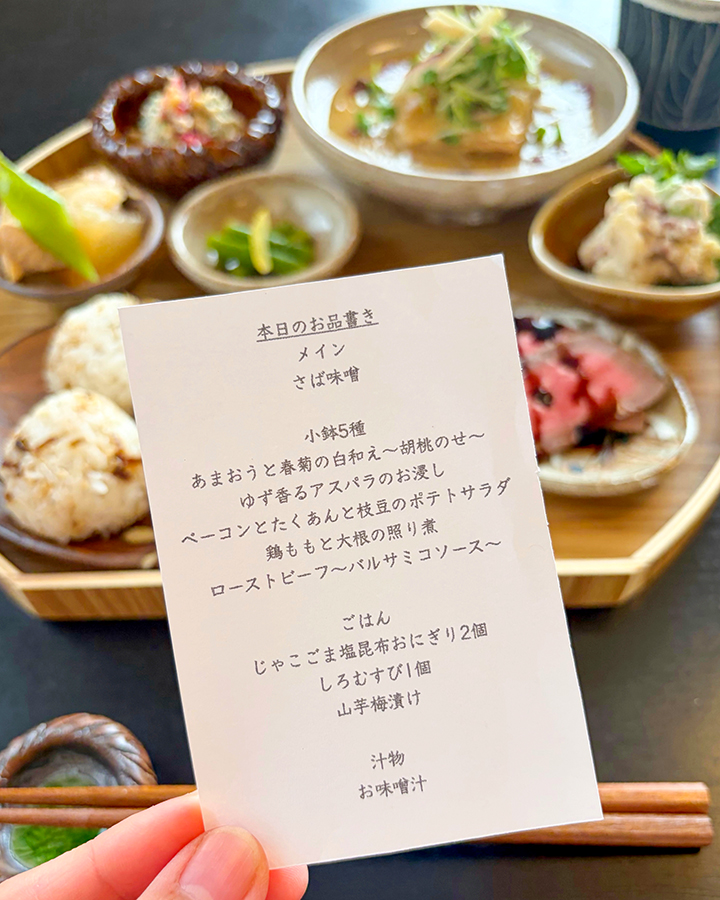 本日のお品書き
メイン
さば味噌
小鉢5種
あまおうと春菊の白和え〜胡桃のせ〜
ゆず香るアスパラのお浸し
ベーコンとたくあんと枝豆のポテトサラダ
鶏ももと大根の照り煮
ローストビーフ〜バルサミコソース〜
ごはん
じゃこごま塩昆布おにぎり2個
しろむすび1個
山芋梅漬け
汁物
お味噌汁